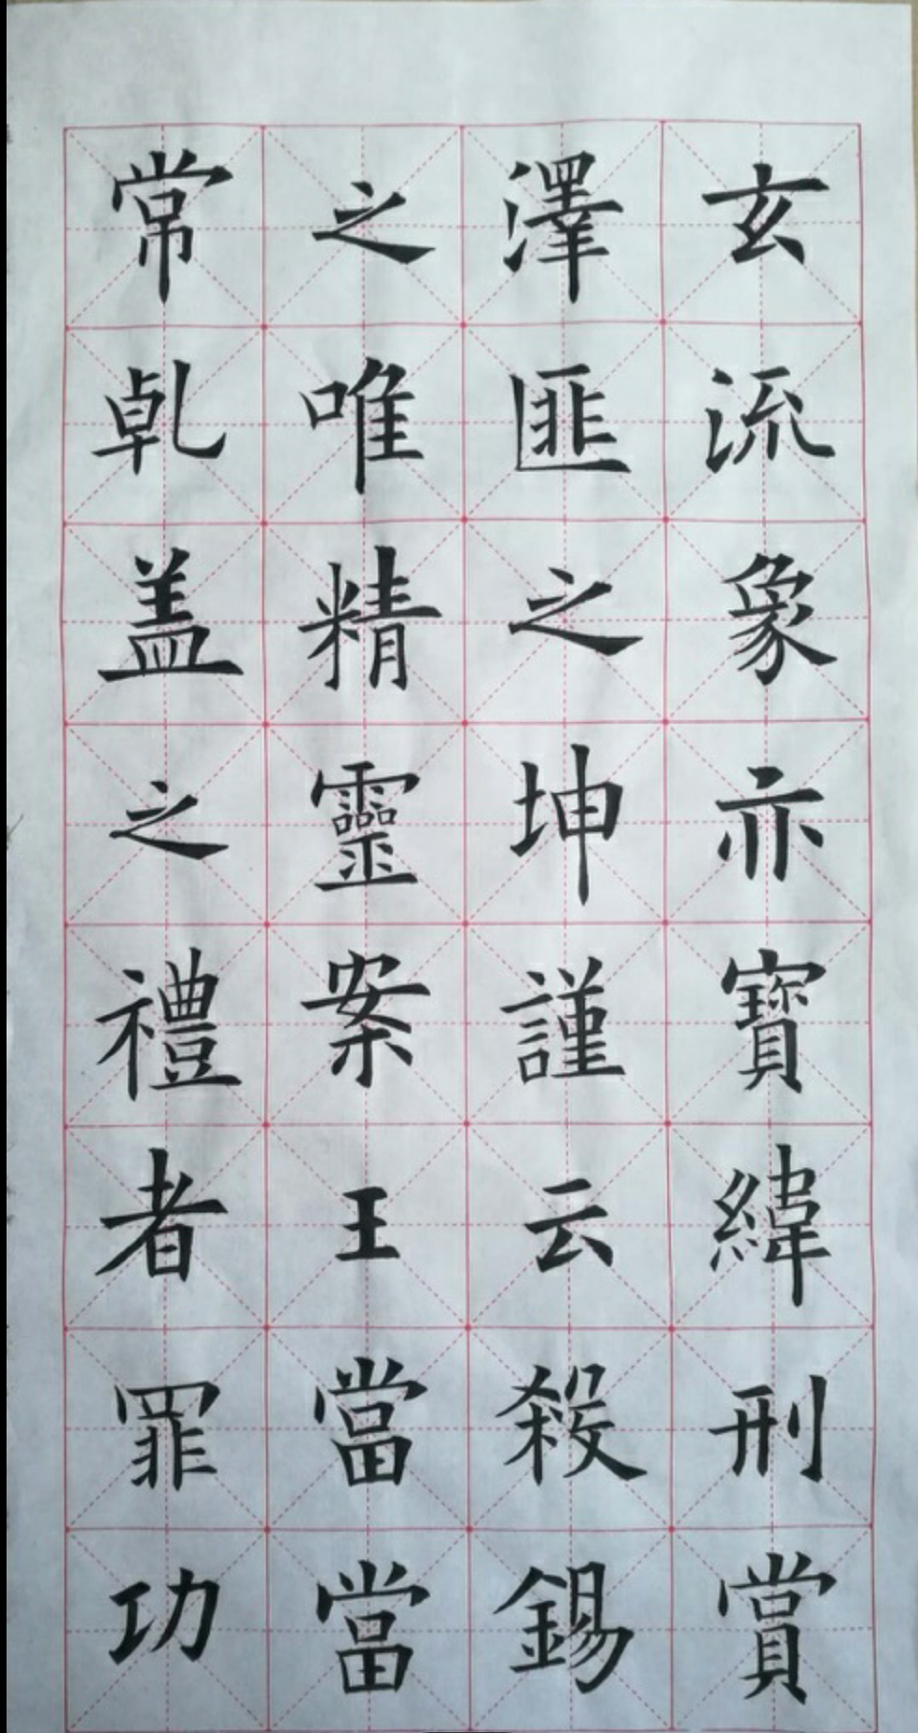 玄流象亦寶緯刑賞
澤匪之坤謹云殺錫
之唯精靈案王當當
常乹盖之禮者罪功